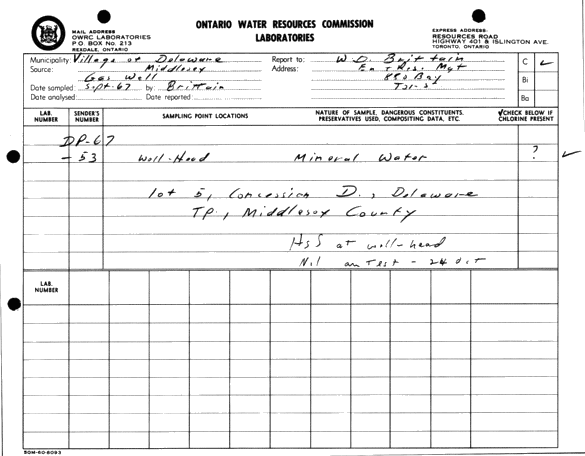 ONTARIO WATER RESOURCES COMMISSION
LABORATORIES
MAIL ADDRESS
OWRC LABORATORIES
P O. BOX No. 213
REXDALE, ONTARIO
EXPRESS ADDRESS·
RESOURCES ROAD
HIGHWAY 401 & ISLINGTON AVE.
TORONTO, ONTARIO
Municipality: Village of Delaware
Source: Middlesex
Gas Well
Date sampled: Sept-67 by: Brittain
Date analysed Date reported
Report to: W D. Brittain
Address:
880 Bay
C ✓
Bi
Ba
LAB. NUMBER SENDER'S NUMBER SAMPLING POINT LOCATIONS NATURE OF SAMPLE, DANGEROUS CONSTITUENTS, PRESERVATIVES USED, COMPOSITING DATA, ETC. ✓CHECK BELOW IF CHLORINE PRESENT
DP-67
-53 Well-Head Mineral Water ? ✓
lot 5, Concession D., Delaware
TP, Middlesex County
H2S at well-head
Nil on Test - 24 Oct
LAB. NUMBER
SGM-60-6093